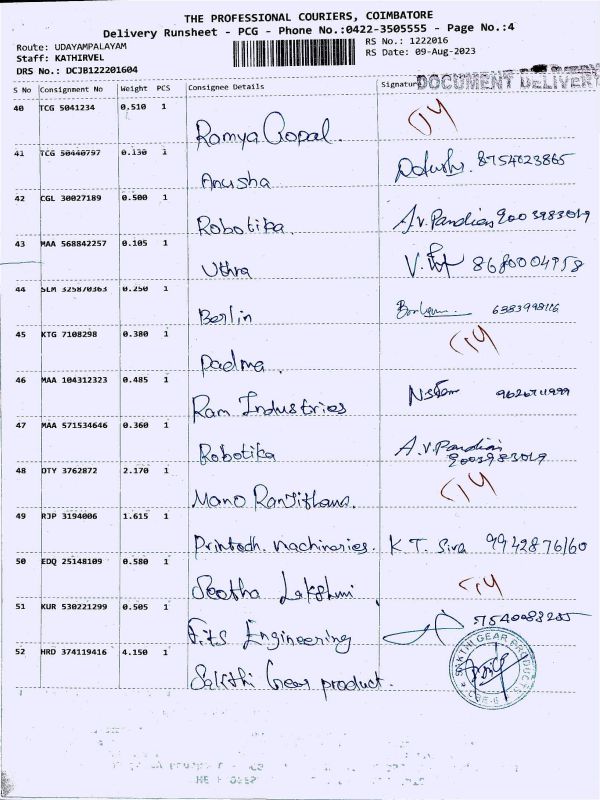 THE PROFESSIONAL COURIERS, COIMBATORE
Delivery Runsheet - PCG - Phone No.:0422-3505555 - Page No.:4
Route: UDAYAMPALAYAM RS No.: 1222016
Staff: KATHIRVEL RS Date: 09-Aug-2023
DRS No.: DCJB122201604
DOCUMENT DELIVERY
S No Consignment No Weight PCS Consignee Details Signature
40 TCG 5041234 0.510 1
Ramya Gopal.
41 TCG 50440797 0.130 1
Anusha 8754023865
42 CGL 30027189 0.500 1
Robotika A.V. Pandian 9003983049
43 MAA 568842257 0.105 1
Uthra 8680004958
44 SLM 325870363 0.250 1
Berlin 6383998116
45 KTG 7108298 0.380 1
Padma.
46 MAA 104312323 0.485 1
Ram Industries
47 MAA 571534646 0.360 1
Robotika A.V. Pandian
9003983049
48 OTY 3762872 2.170 1
Mano Ranjitham.
49 RJP 3194006 1.615 1
machineries. K T. Siva 9942876160
50 EDQ 25148109 0.580 1
Seetha Lakshmi
51 KUR 530221299 0.505 1
Engineering
52 HRD 374119416 4.150 1
Sakthi Gear product.
SAKTHI GEAR PRODUCTS
CBE-6